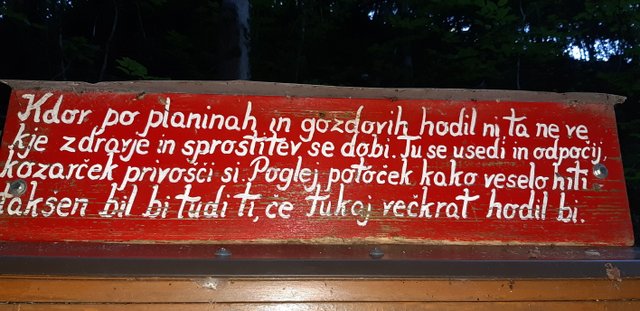 Kdor po planinah in gozdovih hodil ni ta ne ve
kje zdravje in sprostitev se dobi. Tu se usedi in odpočij,
kozarček privošči si. Poglej potoček kako veselo hiti
takšen bil bi tudi ti, če tukaj večkrat hodil bi.